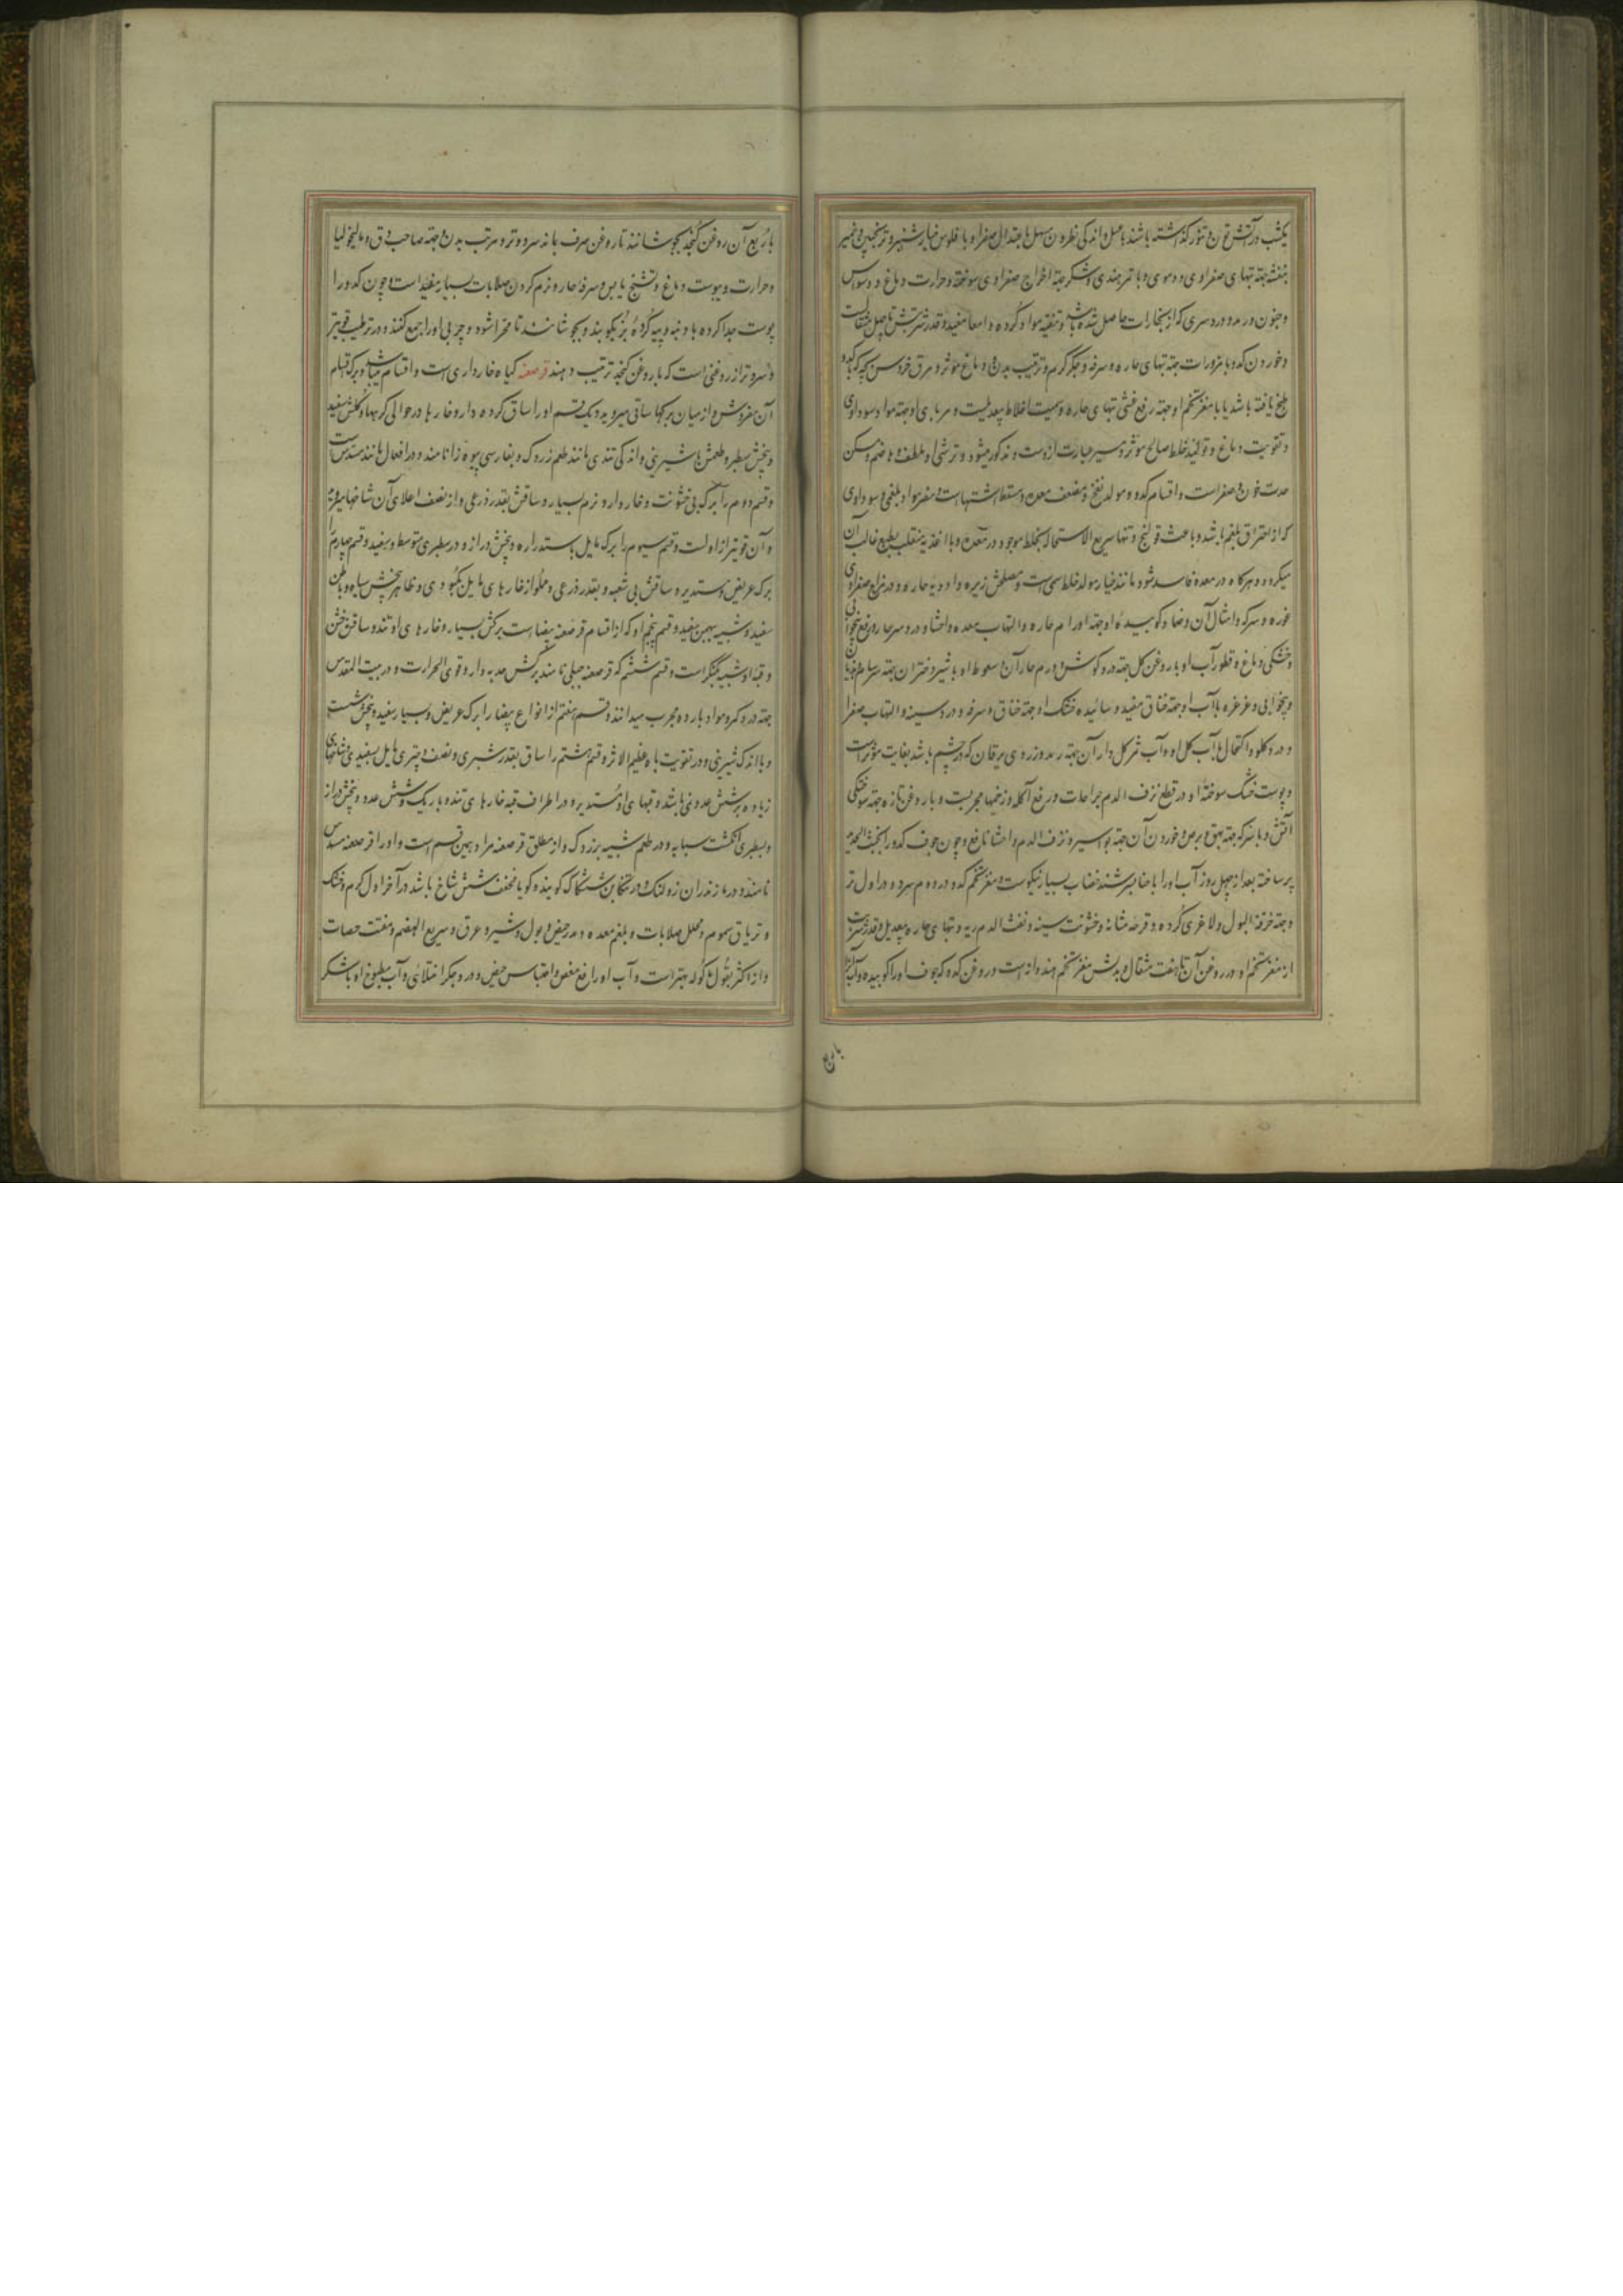 یکشب در آتش تون و تنور گذاشته باشند با عسل و اندکی نطرون مسهل باعتدال صفرا و با فلوس خیارشنبر و ترنجبین و خمیر
بنفشه جهة تبهای صفراوی و دموی و با تمرهندی و شکر جهة اخراج صفراوی سوخته و حرارت دماغ و وسواس
و جنون و رمد و دردسری که از بخارات حاصل شده باشد و تنقیه مواد گرده و امعا مفید و قدر شربتش تا چهل مثقالست
و خوردن کدو با مزورات جهة تبهای حاره و سرفه و جگر گرم و ترطیب بدن و دماغ موثر و مرق خروس بچه که با کدو
طبخ یافته باشد یا با مغز تخم او جهة رفع غشی تبهای حاره و سمیت اخلاط بیعدیلست و مربای او جهة مواد سوداوی
و تقویت دماغ و تولید خلط صالح موثر و سیر عبارت ازوست و مذکور میشود و ترشی او ملطف و هاضم و مسکن
حدت خون و صفراست و اقسام کدو مولد نفخ و مضعف معده و مسقط اشتهاست و مضر مواد بلغمی و سوداوی
که از احتراق بلغم باشد و باعث قولنج و تنها سریع الاستحاله بخلط موجود در معده و با اغذیه منقلب بطبع غالب آن
میگردد و هرگاه در معده فاسد شود مانند خیار مولد خلط سمی است و مصلحش زیره و ادویه حاره و در مزاج صفراوی
غوره و سرکه و امثال آن و ضماد کوبیدهٔ او جهة اورام حاره و التهاب معده و احشا و دردسر حار و رفع بیخوابی
و خشکی دماغ و قطور آب او با روغن کل جهة درد کوش و ورم حار آن و سعوط او با شیر دختران جهة سرسام و هذیان
و بیخوابی و غرغره با آب او جهة خناق مفید و سائیده خشک او جهة خناق و سرفه و درد سینه و التهاب صفرا
و درد کلو و اکتحال با آب کل او و آب ثمر کل دار آن جهة رمد و زردی یرقان که در چشم باشد بغایت مؤثراست
و پوست خشک سوختهٔ او در قطع نزف الدم جراحات و رفع آکله و زخمها مجربست و با روغن تازه جهة سوختگی
آتش و با سرکه جهة بهق و برص و خوردن آن جهة بواسیر و نزف الدم و احشا نافع و چون جوف کدو را بخبث الحدید
پر ساخته بعد از چهل روز آب او را با حنا بسرشند خضاب بسیار نیکوست و مغز تخم کدو در دوم سرد و در اول تر
و جهة حرقة البول و لاغری گرده و قرحه مثانه و خشونت سینه و نفث الدم ریه و تبهای حاره بیعدیل و قدر شربت
از مغز تخم او و در روغن آن تا هفت مثقال و بدلش مغز تخم هندوانه است و روغن کدو که جوف او را کوبیده و آب
با ربع
با ربع آن روغن کنجد بجوشانند تا روغن صرف بماند سرد و تر و مرتب بدن و جهة صاحب دق و مالیخولیا
و حرارت و یبوست دماغ و تشنج یابس و سرفه حار و نرم کردن صلابات بسیار مفید است و چون کدو را
پوست جدا کرده با دنبه و پیه گردهٔ بز بکوبند و بجوشانند تا مهرا شود و چربی او را جمع کنند در ترطیب قویتر
و سردتر از روغنی است که با روغن کنجد ترتیب دهند قرصعنه کیاه خارداری است و اقسام میباشد و برک اقسام
آن مفروش و از میان برکها ساقی میروید و یک قسم او را ساق گره دار و خارها در حوالی گرهها و کلش سفید
و بیخش سطبر و طعمش با شیرینی و اندکی تندی مانند طعم زردک و بفارسی بیوه زا نامند و در افعال مانند مسدس است
و قسم دوم را برک بی خشونت و خاردار و نرم بسیار و ساقش بقدر ذرعی و از نصف اعلای آن شاخها میروید
و آن قویتر از اولست و قسم سیوم را برک مایل باستداره و بیخش دراز و در سطبری متوسط و سفید و قسم چهارم را
برک عریض و مستدیر و ساقش بی شعبه و بقدر ذرعی و مملو از خارهای مایل بکبودی و ظاهر بیخش سیاه و باطن
سفید و شبیه ببهمن سفید و قسم پنجم او که از اقسام قرصعنه بیضا است برکش بسیار و خارهای او تند و ساقش خشن
و قبه او شبیه بکنگر است و قسم ششم که قرصعنه جبلی نامند برکش حدبه دار و قوی الحرارت و در بیت المقدس
جهة درد کمر و مواد بارده مجرب میدانند و قسم هفتم از انواع بیضا را برک عریض و بسیار سفید و بیخش شست
و با اندک شیرینی و در تقویت باه عظیم الاثر و قسم هشتم را ساق بقدر شبری و نصف و چتری مایل بسفیدی و شاخهای
زیاده بر شش عدد نمی باشد و قبهای او مستدیر و در اطراف قبه خارهای تند و باریک و شش عدد و بیخش دراز
و بسطبری انگشت سبابه و در طعم شبیه بزردک و از مطلق قرصعنه مراد همین قسم است و او را قرصعنه مسدس
نامند و در مازندران زولنک و در تنکابن ششکاک گویند و کویا مخفف شش شاخ باشد در آخر اول گرم و خشک
و تریاق سموم و محلل صلابات و بلغم معده و مدر حیض و بول و شیر و عرق و سریع الهضم و مفتت حصات
و از اکثر بقول ماکوله بهتر است و آب او رافع مغص و احتباس حیض و درد جگر امتلائی و آب مطبوخ او با شکر